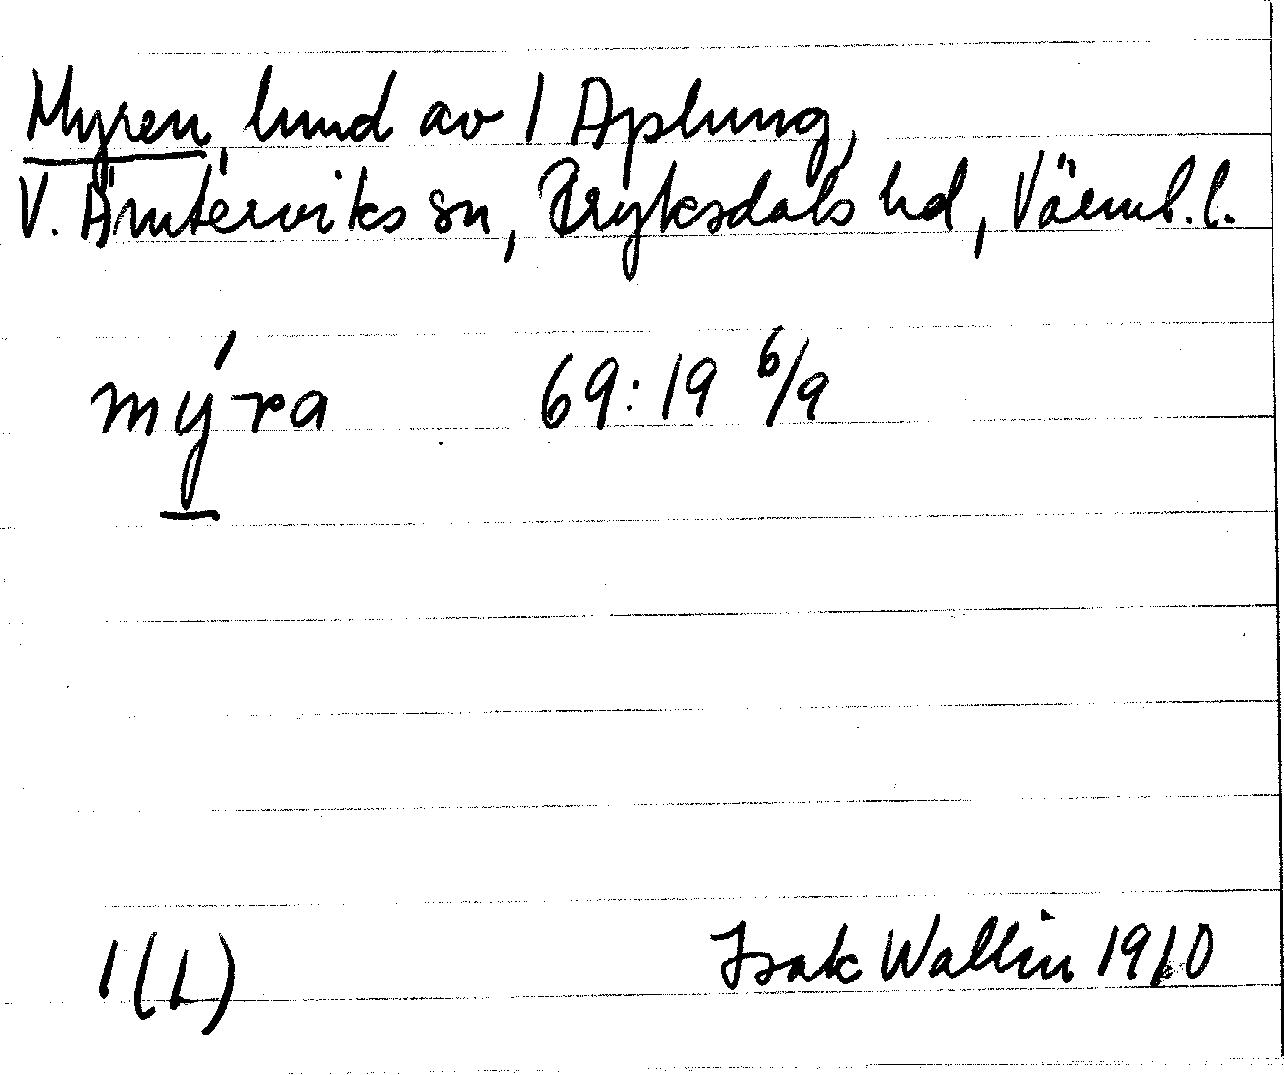 Myren, lund av 1 Aplung,
V. Ämterviks sn, Fryksdals hd, Värml. l.
mýra 69:19 6/9
1(L)
Isak Wallin 1910